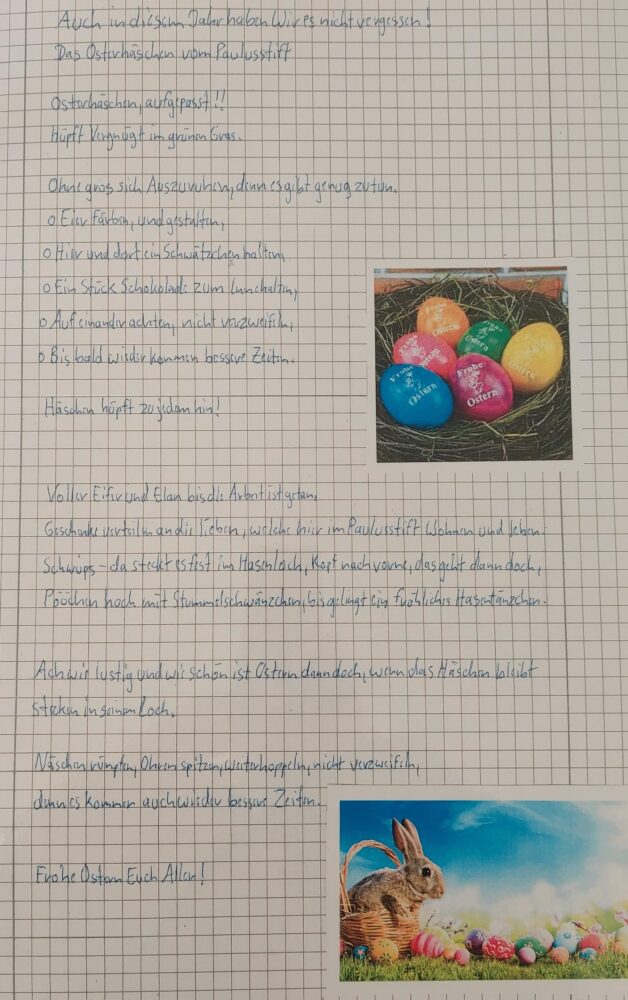 Auch in diesem Jahr haben Wir es nicht vergessen!
Das Osterhäschen vom Paulusstift
Osterhäschen, aufgepasst!!
Hüpft Vergnügt im grünen Gras.
Ohne gros sich Auszuruhen, denn es gibt genug zu tun.
o Eier Färben, und gestalten,
o Hier und dort ein Schwätzchen halten,
o Ein Stück Schokolade zum Innehalten,
o Aufeinander achten, nicht verzweifeln,
o Bis bald wieder kommen bessere Zeiten.
Häschen hüpft zu jedem hin!
Frohe Ostern
Frohe Ostern
Frohe Ostern
Frohe Ostern
Voller Eifer und Elan bis die Arbeit ist getan.
Geschenke verteilen an die lieben, welche hier im Paulusstift Wohnen und leben.
Schwups - da steckt es fest im Hasenloch, Kopf nach vorne, das geht dann doch,
Popöchen hoch mit Stummelschwänzchen, bis gelingt ein fröhliches Hasentänzchen.
Ach wie lustig und wie schön ist Ostern dann doch, wenn das Häschen bleibt
stecken in seinem Loch.
Näschen rümpfen, Ohren spitzen, weiterhoppeln, nicht verzweifeln,
denn es kommen auch wieder bessere Zeiten.
Frohe Ostern Euch Allen!